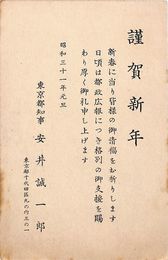 謹賀新年
新春に当り皆様の御清福をお祈りします
日頃は都政広報につき格別の御支援を賜
わり厚く御礼申し上げます
昭和三十一年元旦
東京都知事 安井誠一郎
東京都千代田区丸の内三の一